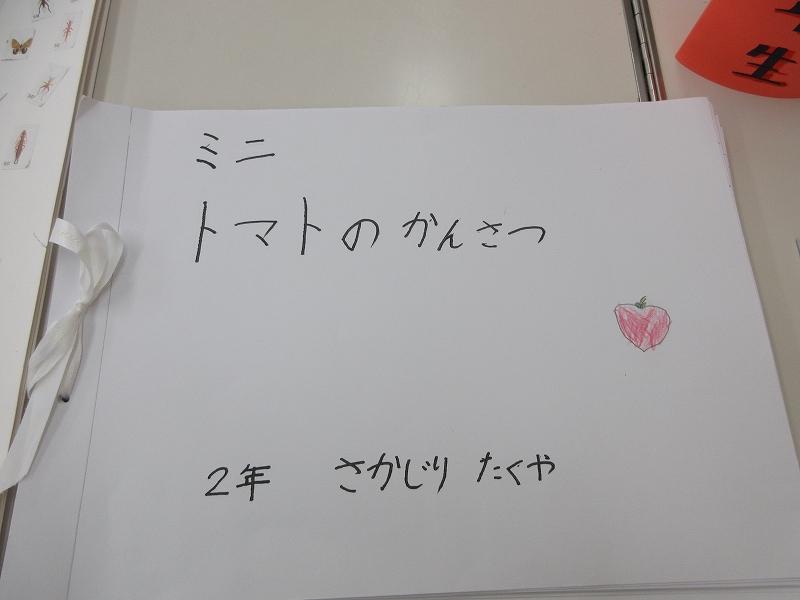 生
ミニ
トマトのかんさつ
2年 さかじり たくや